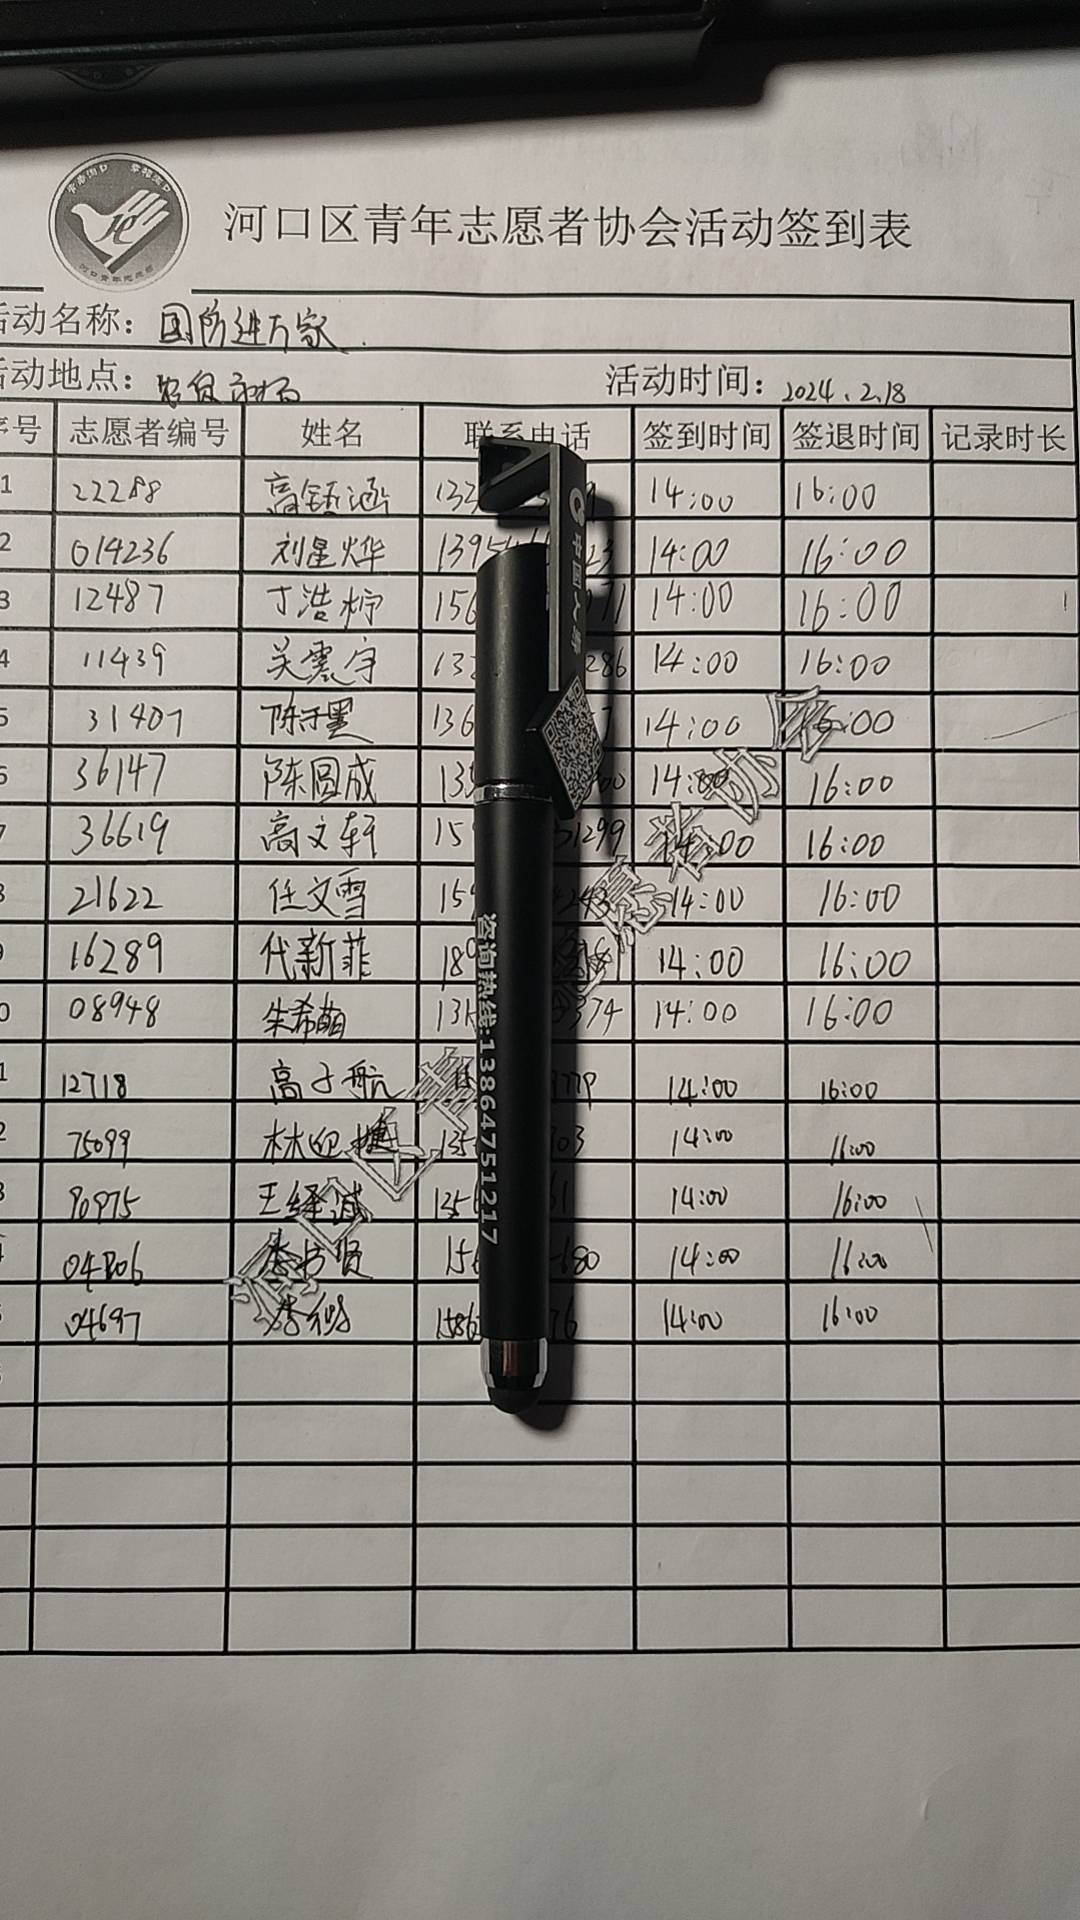 河口区青年志愿者协会活动签到表
活动名称：国防进万家.
活动地点： 活动时间：2024.2.18
序号 志愿者编号 姓名 联系电话 签到时间 签退时间 记录时长
1 22288 高 涵 14:00 16:00
2 014236 刘星烨 14:00 16:00
3 12487 丁浩柠 14:00 16:00
4 11439 关震宇 14:00 16:00
5 31407 陈 14:00 16:00
6 36147 陈圆成 14:00 16:00
7 36619 高文轩 14:00 16:00
21622 任文雪 14:00 16:00
16289 代新菲 14:00 16:00
0 08948 朱希萌 14:00 16:00
1 12718 高子航 14:00 16:00
2 75099 林迎 14:00 16:00
3 90975 王绎诚 14:00 16:00
李书贤 14:00 16:00
04697 14:00 16:00
中国人寿
咨询热线:13864751217